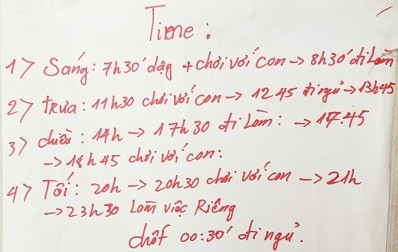 Time:
1> Sáng: 7h30' dạy + chơi với con → 8h30' đi Làm
2> trưa: 11h30 chơi với con → 12 45 đi ngủ → 13h45
3> chiều: 14h → 17h30 đi Làm: → 17.45
→ 18h45 chơi với con:
4> Tối: 20h → 20h30 chơi với con → 21h
→ 23h30 Làm việc Riêng
chốt 00:30' đi ngủ.